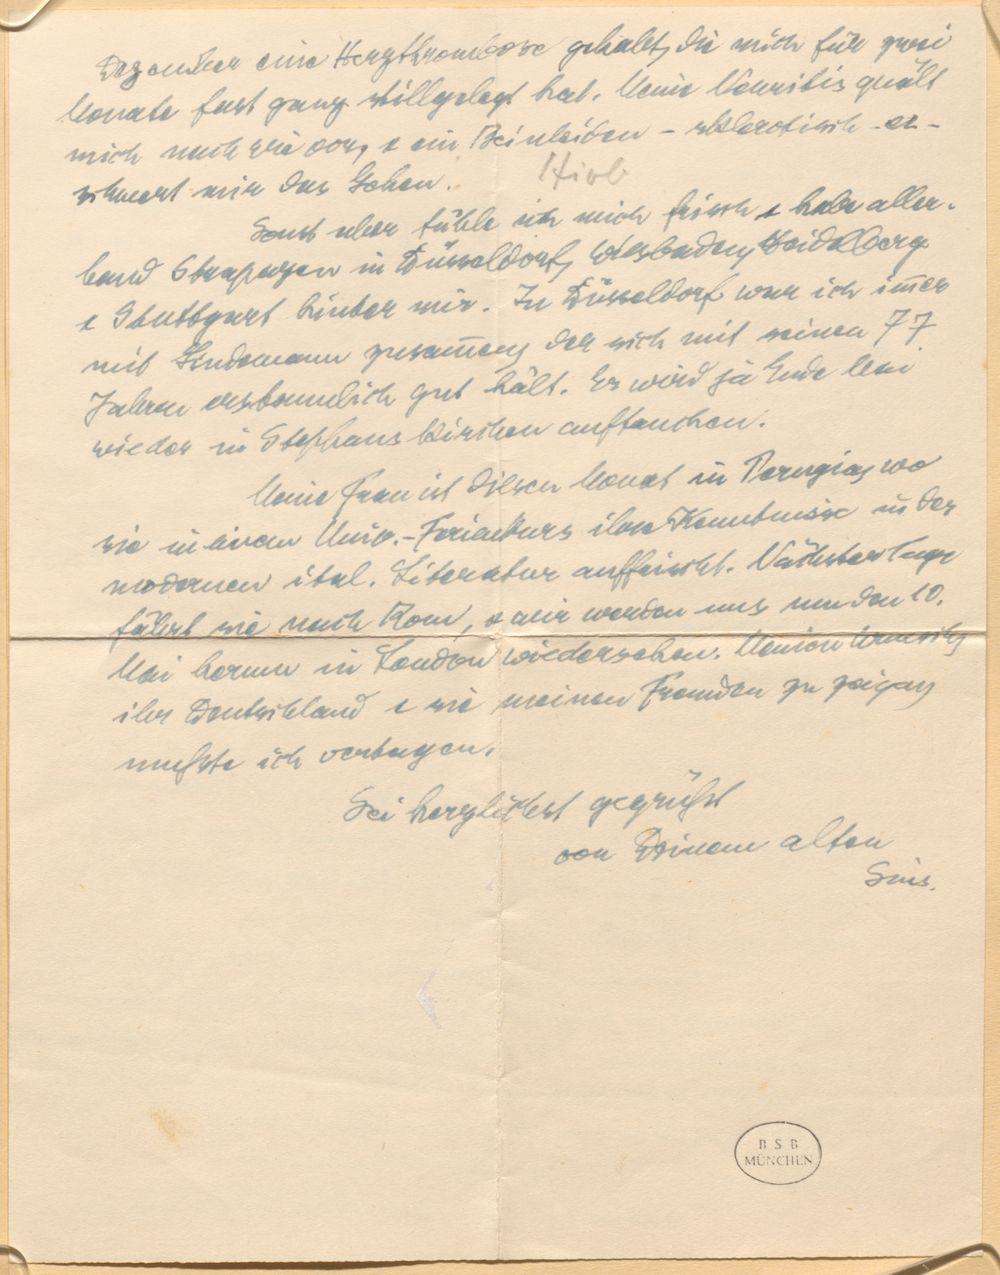 Dezember eine Herzthrombose gehabt, die mich für zwei
Monate fast ganz stillgelegt hat. Meine Neuritis quält
mich nach wie vor, & ein Beinleiden – sklerotisch – er-
schwert mir das Gehen.
Hirb
Sonst aber fühle ich mich frisch & habe aller-
hand Strapazen in Düsseldorf, Wiesbaden, Heidelberg
& Stuttgart hinter mir. In Düsseldorf war ich im̅er
mit Lindemann zusam̅en, der sich mit seinen 77
Jahren erstaunlich gut hält. Er wird ja Ende Mai
wieder in Stephanskirchen auftauchen.
Meine Frau ist diesen Monat in Perugia, wo
sie in einem Univ.-Ferienkurs ihre Kenntnisse in der
modernen ital. Literatur auffrischt. Nächster Tage
fährt sie nach Rom, & wir werden uns um den 10.
Mai herum in London wiedersehen. Meinen Wunsch,
ihr Deutschland & sie meinen Freunden zu zeigen,
mußte ich vertagen.
Sei herzlichst gegrüßt
von Deinem alten
Sins.
BSB
MÜNCHEN